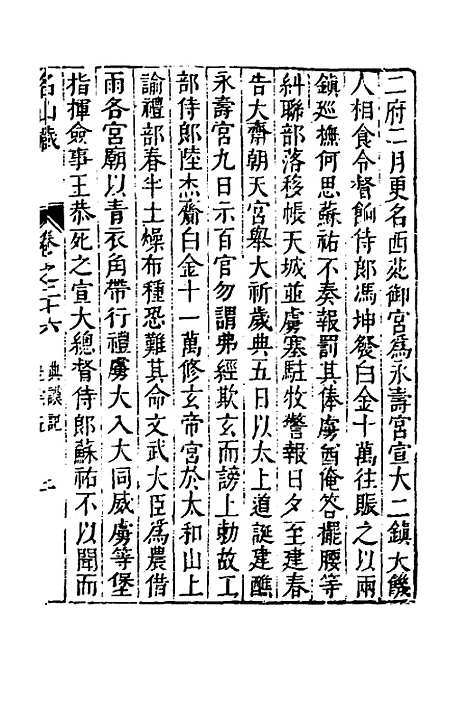 二府二月更名西苑御宮爲永壽宮宣大二鎮大饑
人相食令督餉侍郎馮坤發白金十萬往賑之以兩
鎮巡撫何思蘇祐不奏報罰其俸虜酋俺答擺腰等
糾聯部落移帳天城並虜塞駐牧警報日夕至建春
告大齋朝天宮舉大祈歲典五日以太上道誕建醮
永壽宮九日示百官勿謂弗經欺玄而謗上勅故工
部侍郎陸杰齎白金十一萬修玄帝宮於太和山上
諭禮部春半土燥布種恐難其命文武大臣爲農借
雨各宮廟以青衣角帶行禮虜大入大同威虜等堡
指揮僉事王恭死之宣大總督侍郎蘇祐不以聞而
名山藏
卷之二十六
典謨記